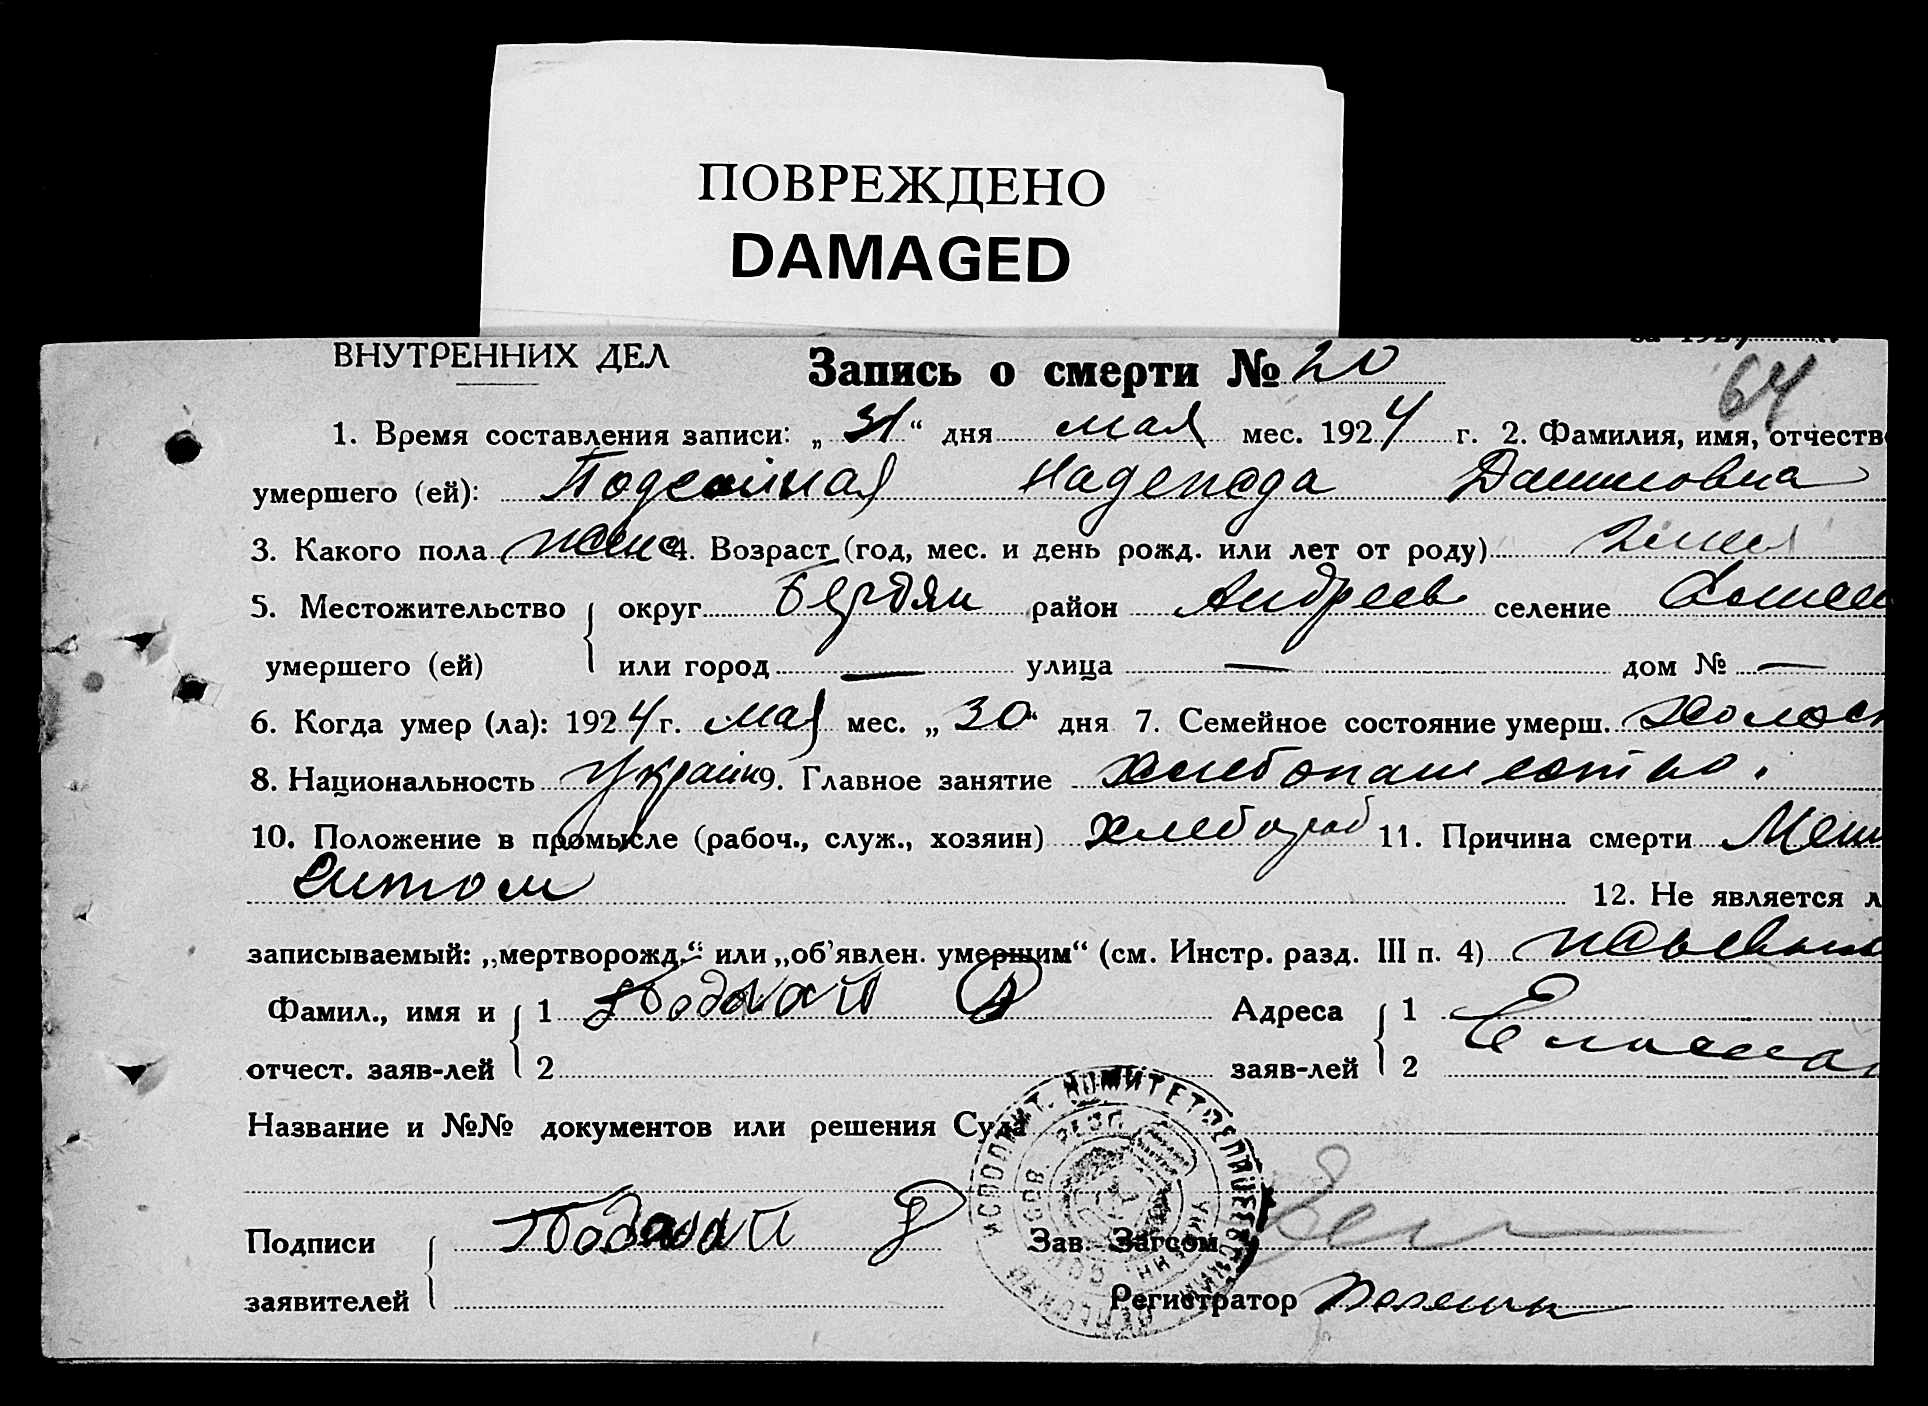 ПОВРЕЖДЕНО
DAMAGED
ВНУТРЕННИХ ДЕЛ
Запись о смерти № 20
64
1. Время составления записи: „31“ дня мая мес. 1924 г. 2. Фамилия, имя, отчеств
умершего (ей): Надежда Даниловна
3. Какого пола женс 4. Возраст (год, мес. и день рожд. или лет от роду)
5. Местожительство округ Бердян район Андреев селение
умершего (ей) или город — улица — дом № —
6. Когда умер (ла): 1924 г. мая мес. „30“ дня 7. Семейное состояние умерш. холост
8. Национальность Украин 9. Главное занятие хлебопашество.
10. Положение в промысле (рабоч., служ., хозяин) хлебороб 11. Причина смерти Мен
12. Не является л
записываемый: „мертворожд.“ или „об'явлен. умершим“ (см. Инстр. разд. III п. 4)
Фамил., имя и 1 Адреса 1
отчест. заяв-лей 2 заяв-лей 2
Название и №№ документов или решения Суда
Подписи Зав. Загсом
заявителей Регистратор